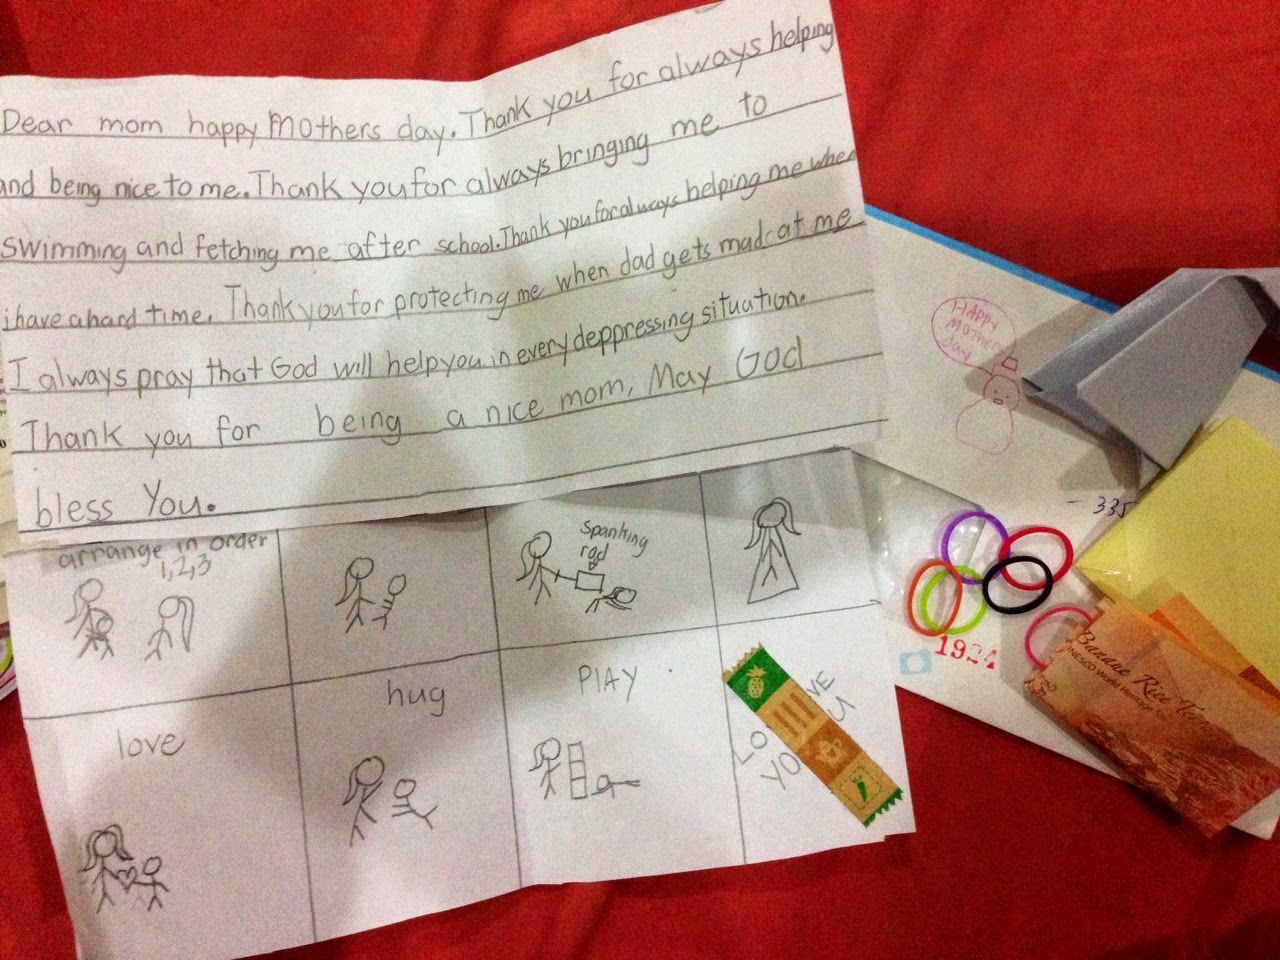 Dear mom happy Mothers day. Thank you for always helping
and being nice to me. Thank you for always bringing me to
swimming and fetching me after school. Thank you for always helping me when
i have a hard time. Thank you for protecting me when dad gets mad at me
I always pray that God will help you in every deppressing situation.
Thank you for being a nice mom, May God
bless You.
arrange in order
1,2,3
spanking
rod
love
hug
PlAY
LOVE
YOU
HAPPY
Mother
day
- 335
1924
Banaue Rice
UNESCO World Heritage